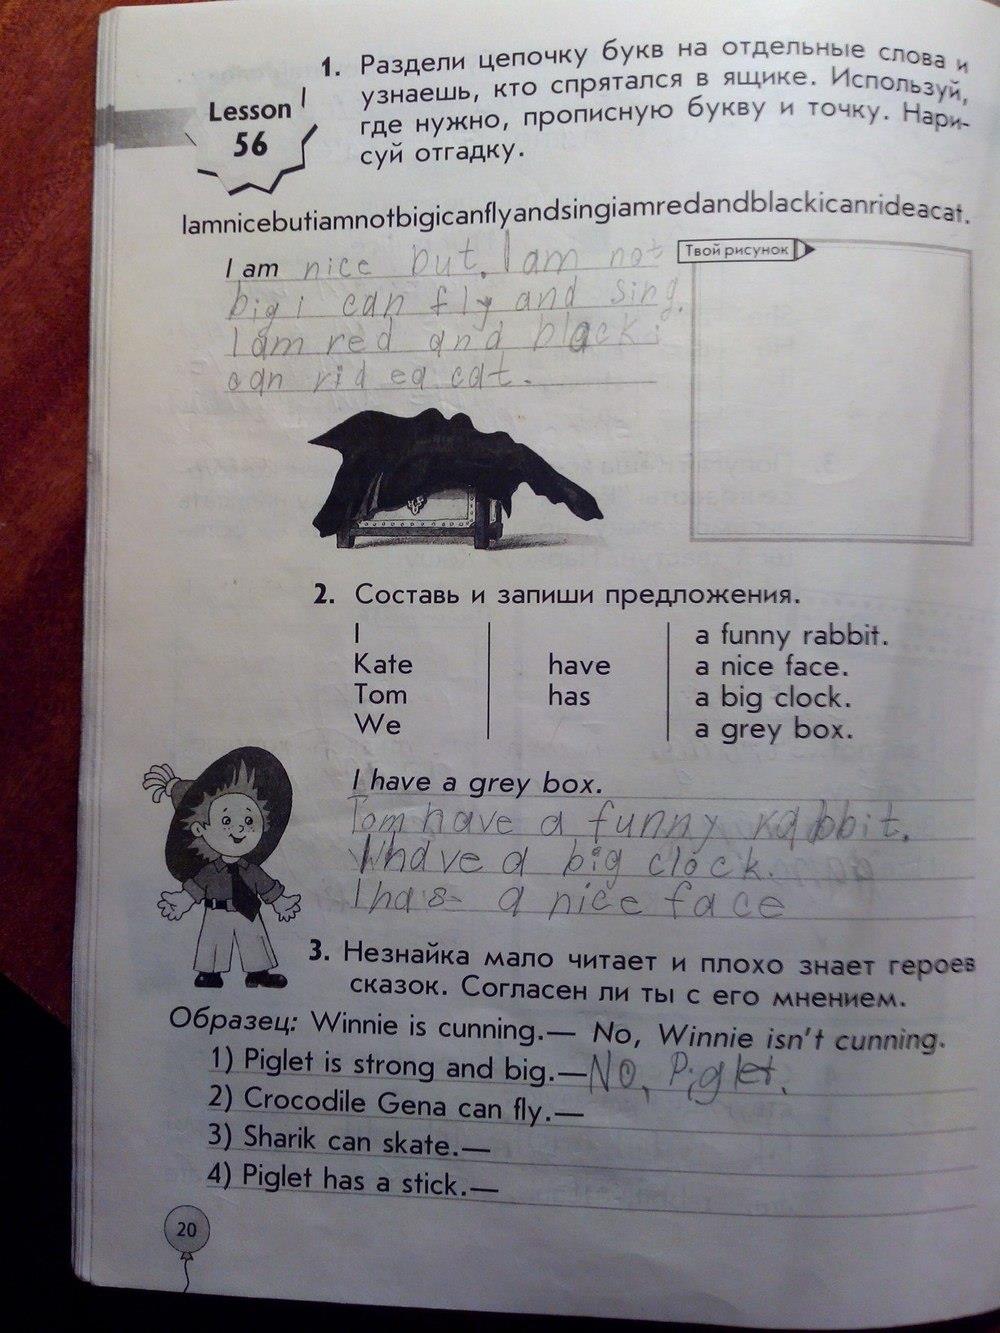 Lesson
56
1. Раздели цепочку букв на отдельные слова и
узнаешь, кто спрятался в ящике. Используй,
где нужно, прописную букву и точку. Нари-
суй отгадку.
Iamnicebutiamnotbigicanflyandsingiamredandblackicanrideacat.
I am nice but. I am not
big i can fly and sing.
I am red and black i
can rid ea cat.
Твой рисунок
2. Составь и запиши предложения.
I
Kate
Tom
We
have
has
a funny rabbit.
a nice face.
a big clock.
a grey box.
I have a grey box.
Tom have a funny rabbit.
have a big clock.
I has a nice face
3. Незнайка мало читает и плохо знает героев
сказок. Согласен ли ты с его мнением.
Образец: Winnie is cunning.— No, Winnie isn't cunning.
1) Piglet is strong and big.— No, Piglet.
2) Crocodile Gena can fly.—
3) Sharik can skate.—
4) Piglet has a stick.—
20